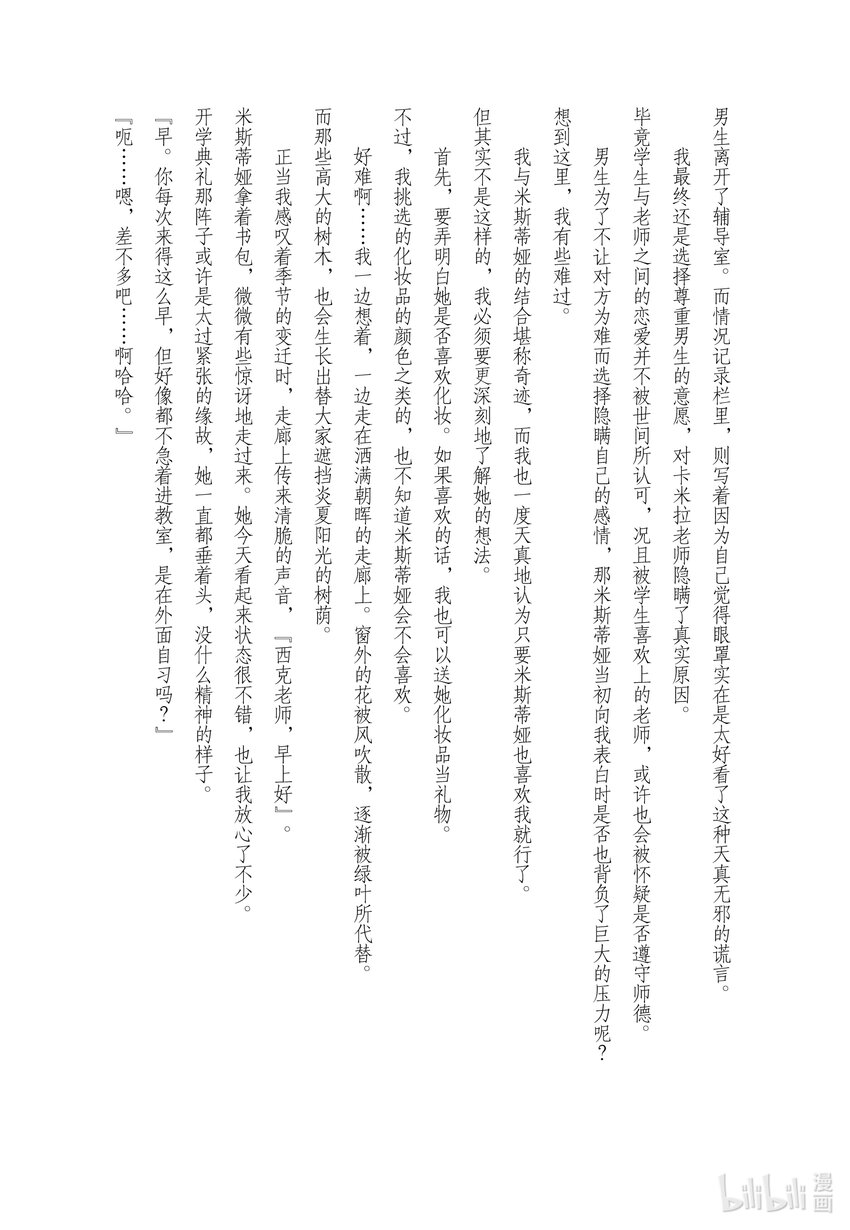 男生离开了辅导室。而情况记录栏里，则写着因为自己觉得眼罩实在是太好看了这种天真无邪的谎言。
我最终还是选择尊重男生的意愿，对卡米拉老师隐瞒了真实原因。
毕竟学生与老师之间的恋爱并不被世间所认可，况且被学生喜欢上的老师，或许也会被怀疑是否遵守师德。
男生为了不让对方为难而选择隐瞒自己的感情，那米斯蒂娅当初向我表白时是否也背负了巨大的压力呢？
想到这里，我有些难过。
我与米斯蒂娅的结合堪称奇迹，而我也一度天真地认为只要米斯蒂娅也喜欢我就行了。
但其实不是这样的，我必须要更深刻地了解她的想法。
首先，要弄明白她是否喜欢化妆。如果喜欢的话，我也可以送她化妆品当礼物。
不过，我挑选的化妆品的颜色之类的，也不知道米斯蒂娅会不会喜欢。
好难啊……我一边想着，一边走在洒满朝晖的走廊上。窗外的花被风吹散，逐渐被绿叶所代替。
而那些高大的树木，也会生长出替大家遮挡炎夏阳光的树荫。
正当我感叹着季节的变迁时，走廊上传来清脆的声音，『西克老师，早上好』。
米斯蒂娅拿着书包，微微有些惊讶地走过来。她今天看起来状态很不错，也让我放心了不少。
开学典礼那阵子或许是太过紧张的缘故，她一直都垂着头，没什么精神的样子。
『早。你每次来得这么早，但好像都不急着进教室，是在外面自习吗？』
『呃……嗯，差不多吧……啊哈哈。』
bilibili 漫画